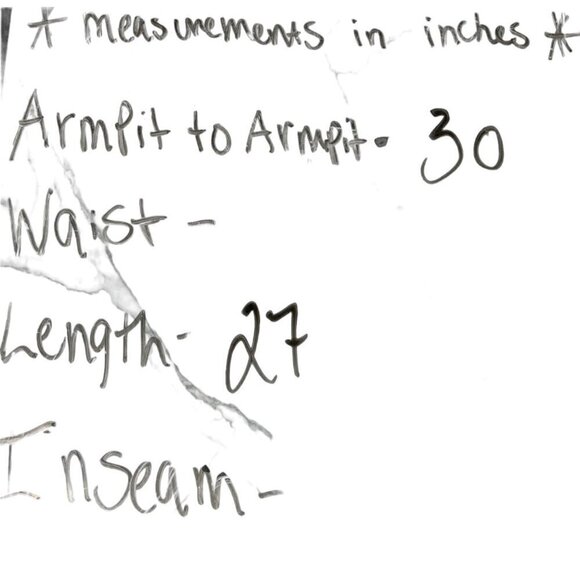 * measurements in inches *
Armpit to Armpit - 30
Waist -
Length - 27
Inseam -